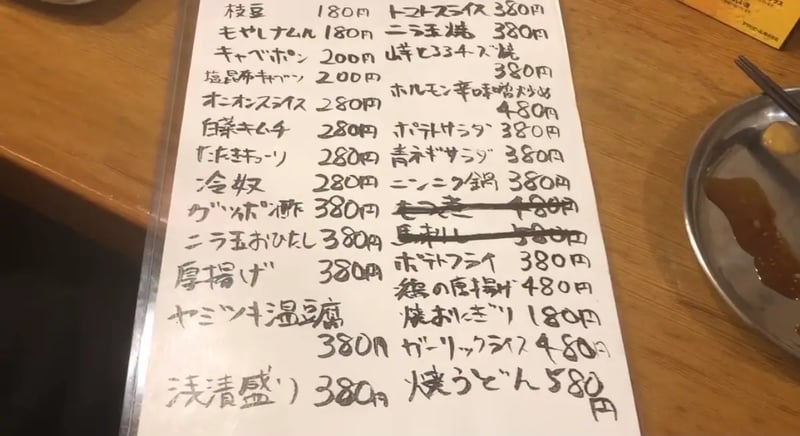 枝豆 180円
もやしナムル 180円
キャベポン 200円
塩昆布キャベツ 200円
オニオンスライス 280円
白菜キムチ 280円
たたきキューリ 280円
冷奴 280円
ガツポン酢 380円
ニラ玉おひたし 380円
厚揚げ 380円
ヤミツキ温豆腐
380円
浅漬盛り 380円
トマトスライス 380円
ニラ玉焼 380円
山芋とろろチーズ焼
380円
ホルモン辛味噌炒め
480円
ポテトサラダ 380円
青ネギサラダ 380円
ニンニク鍋 380円
もつ煮 480円
馬刺し 580円
ポテトフライ 380円
鶏の唐揚げ 480円
焼おにぎり 180円
ガーリックライス 480円
焼うどん 580
円